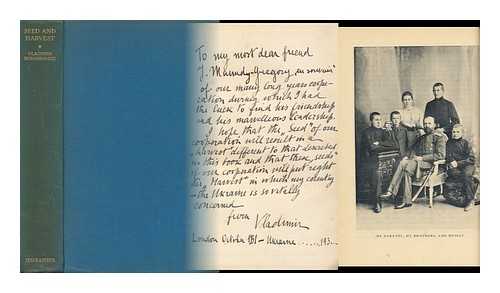 SEED AND
HARVEST
VLADIMIR
To my most dear friend
J. Maundy-Gregory, "en souvenir"
of our many long years coope-
ration during which I had
the luck to find his friendship
and his marvellous leadership.
I hope that the "Seed" of our
corporation will result in a
"Harvest" different to that described
in this book and that these "seeds"
of our corporation will put right
the "Harvest" in which my country
- the Ukraine is so vitally
concerned
from Vladimir
London October 1931 - Ukraine ..... 193...
MY PARENTS, MY BROTHERS, AND MYSELF